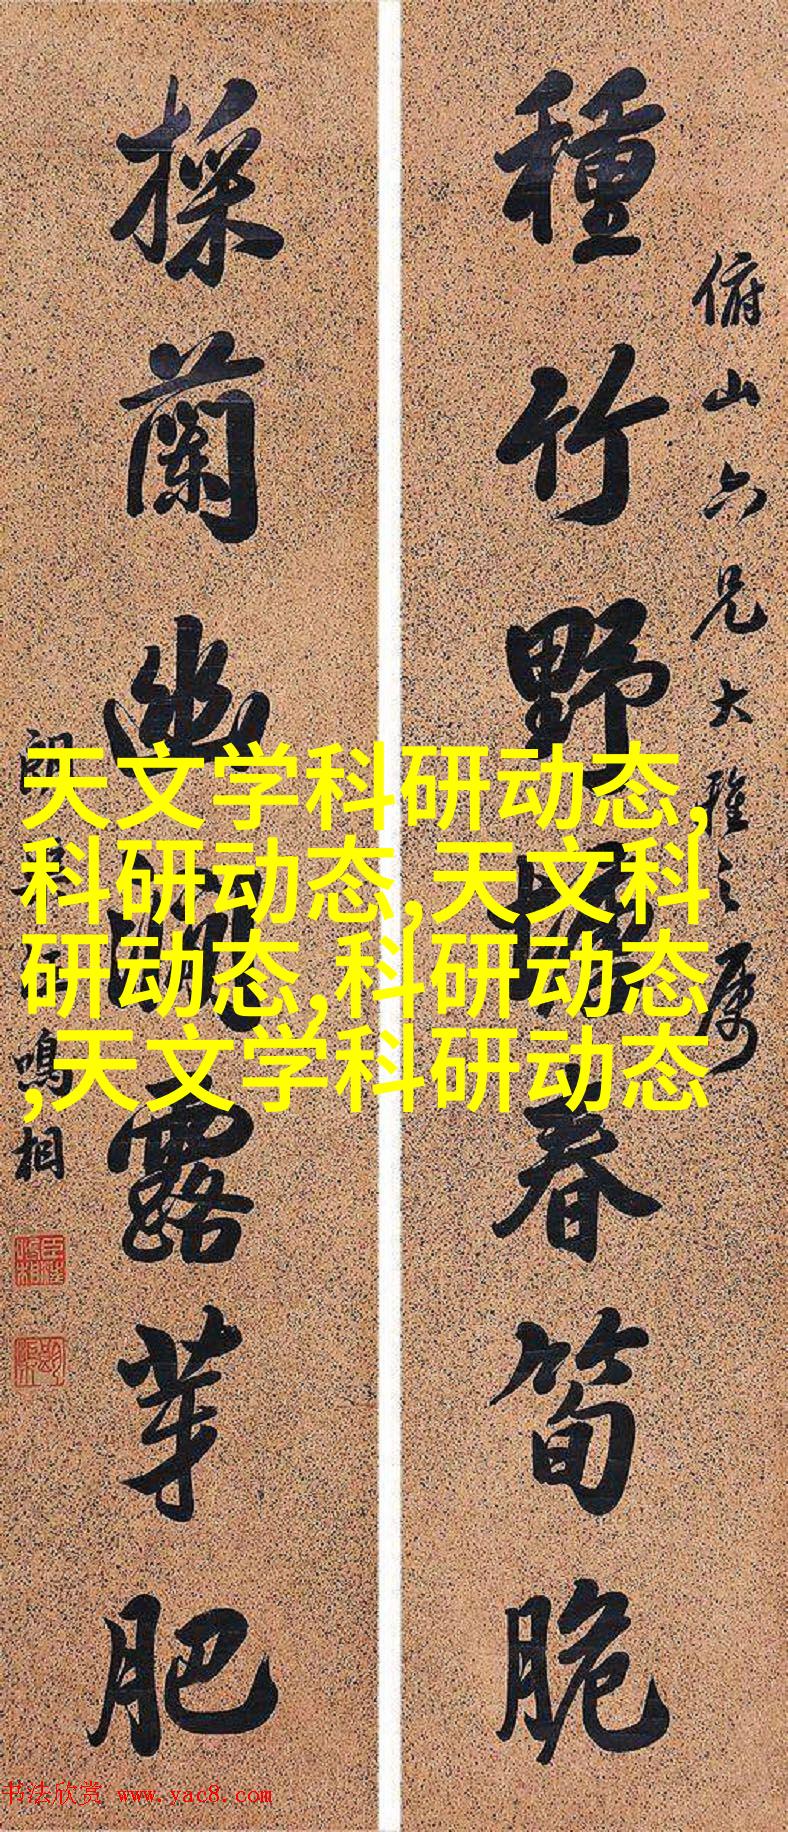 俯山六兄大雅之属
種竹野塘春筍脆
採蘭幽澗露芽肥
鳴相
天文学科研动态,
科研动态,天文科
研动态,科研动态
,天文学科研动态
书法欣赏 www.yac8.com